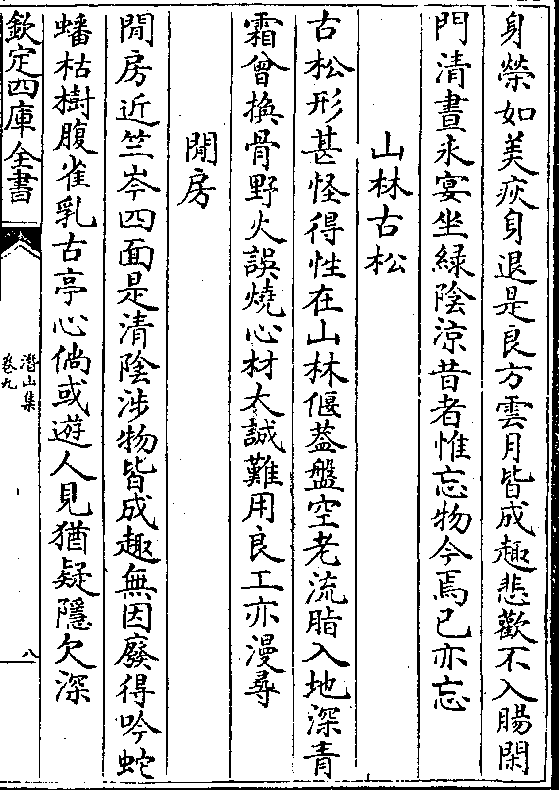 身榮如美疢身退是良方雲月皆成趣悲歡不入腸閑
門清晝永宴坐綠陰涼昔者惟忘物今焉已亦忘
山林古松
古松形甚怪得性在山林偃蓋盤空老流脂入地深青
霜曾換骨野火誤燒心材大誠難用良工亦漫尋
閒房
閒房近竺岑四面是清陰涉物皆成趣無因廢得吟蛇
蟠枯樹腹雀乳古亭心倘或遊人見猶疑隱欠深
欽定四庫全書
潛山集
卷九
八